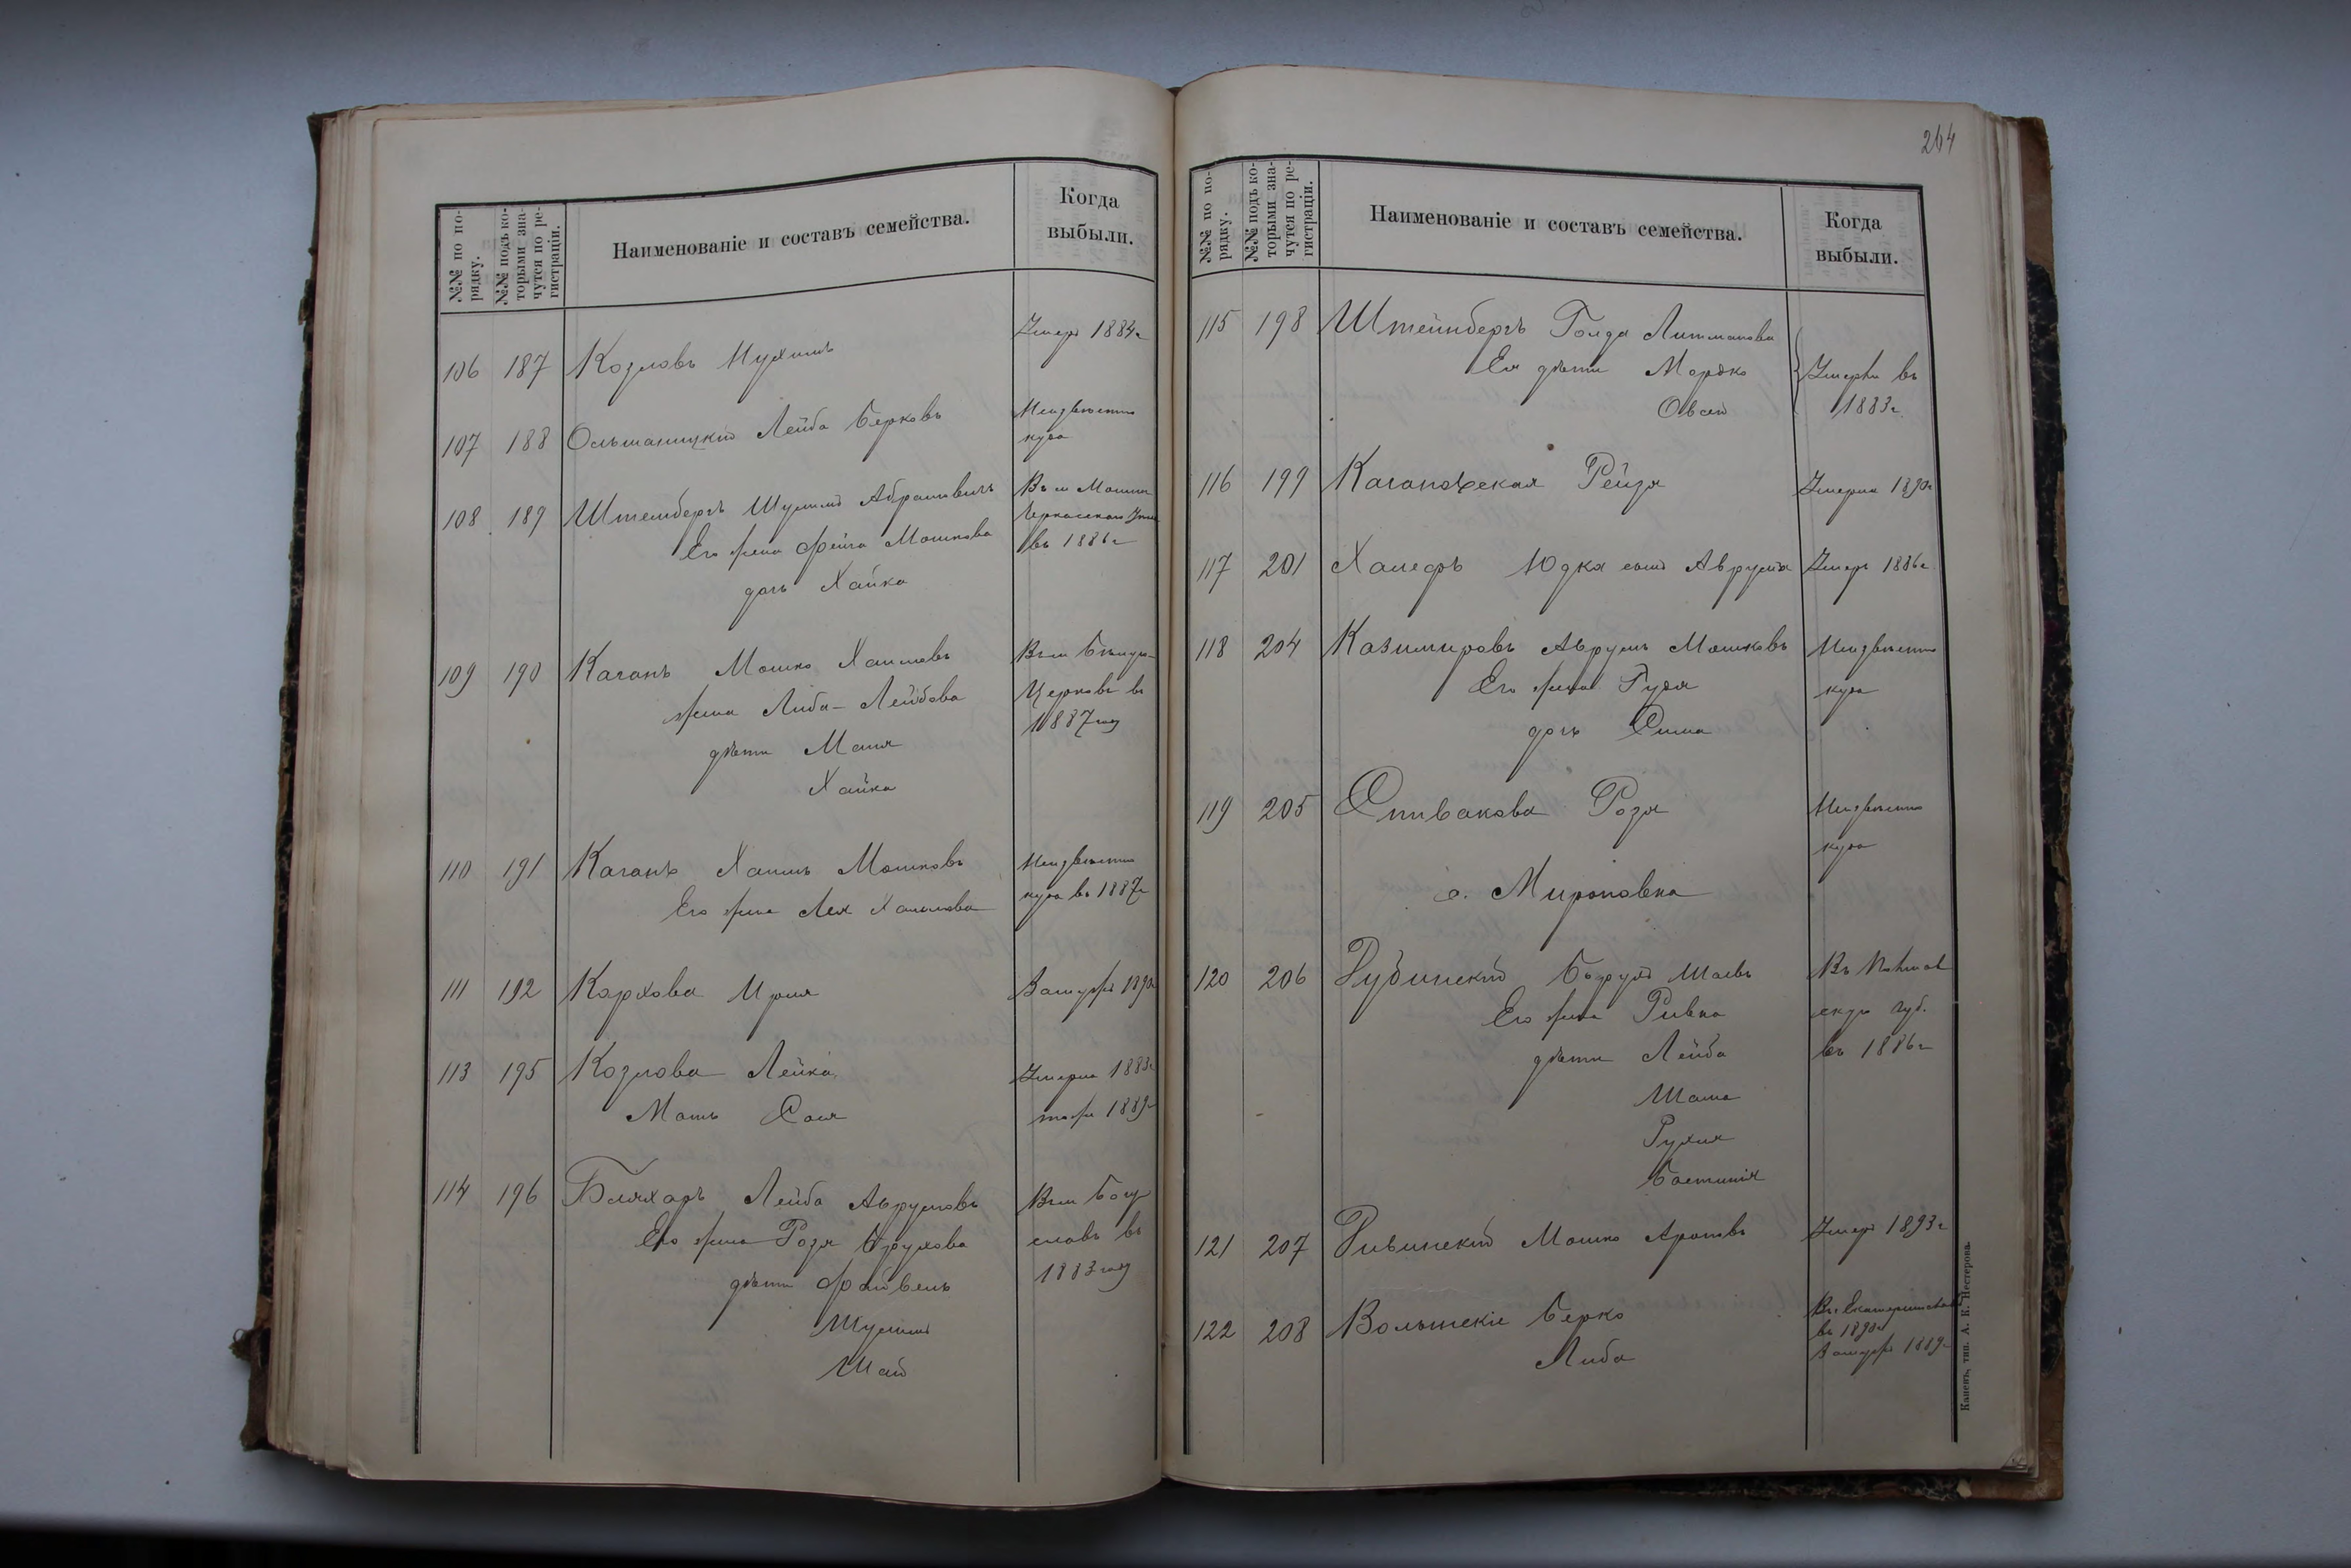 №№ по по-
рядку.
№№ подъ ко-
торыми зна-
чутся по ре-
гистраціи.
Наименованіе и составъ семейства.
Когда
выбыли.
106 187 Козловъ Нухимъ Умеръ 1884 г
107 188 Ольшаницкій Лейба Берковъ Неизвѣстно
куда
108 189 Штеинбергъ Шулимъ Абрамовичъ Въ м Мошны
Его жена Фейга Мошкова Черкасскаго
дочь Хайка въ 1886 г
109 190 Каганъ Мошко Хаимовъ Въ м Бѣлую
жена Либа-Лейбова Церковь въ
дѣти Маня 1887 году
Хайка
110 191 Каганъ Хаимъ Мошковъ Неизвѣстно
Его жена Лея Хаимова куда въ 1887 г
111 192 Кархова Замужъ 1890
113 195 Козлова Лейка Умерла 1883 г
Мать Сося тоже 1889 г
114 196 Бляхаръ Лейба Аврумовъ Въ м Богу
Его жена Розя Брухова славъ въ
дѣти Файвель 1883 году
Шулимъ
Шай
264
№№ по по-
рядку.
№№ подъ ко-
торыми зна-
чутся по ре-
гистраціи.
Наименованіе и составъ семейства.
Когда
выбыли.
115 198 Штейнбергъ Голда Литманова
Ея дѣти Мордко Умерли въ
Овсей 1883 г.
116 199 Кагановская Рейзя Умерла 1890 г
117 201 Халефъ Юдка сынъ Аврума Умеръ 1886 г
118 204 Казимировъ Аврумъ Мошковъ Неизвѣстно
Его жена Гудя куда
дочь Сима
119 205 Спивакова Розя Неизвѣстно
куда
с. Мироновка
120 206 Рубинскій Борухъ Шаевъ Въ
Его жена Ривка скую губ.
дѣти Лейба въ 1886 г
Шама
Рухля
Бастишія
121 207 Ривинскій Мошко Ароновъ Умеръ 1893 г
122 208 Волынскіе Берко Въ г Екатеринославъ
въ 1890 г
Либа Замужъ 1889 г
Каневъ, тип. А. К. Нестерова.